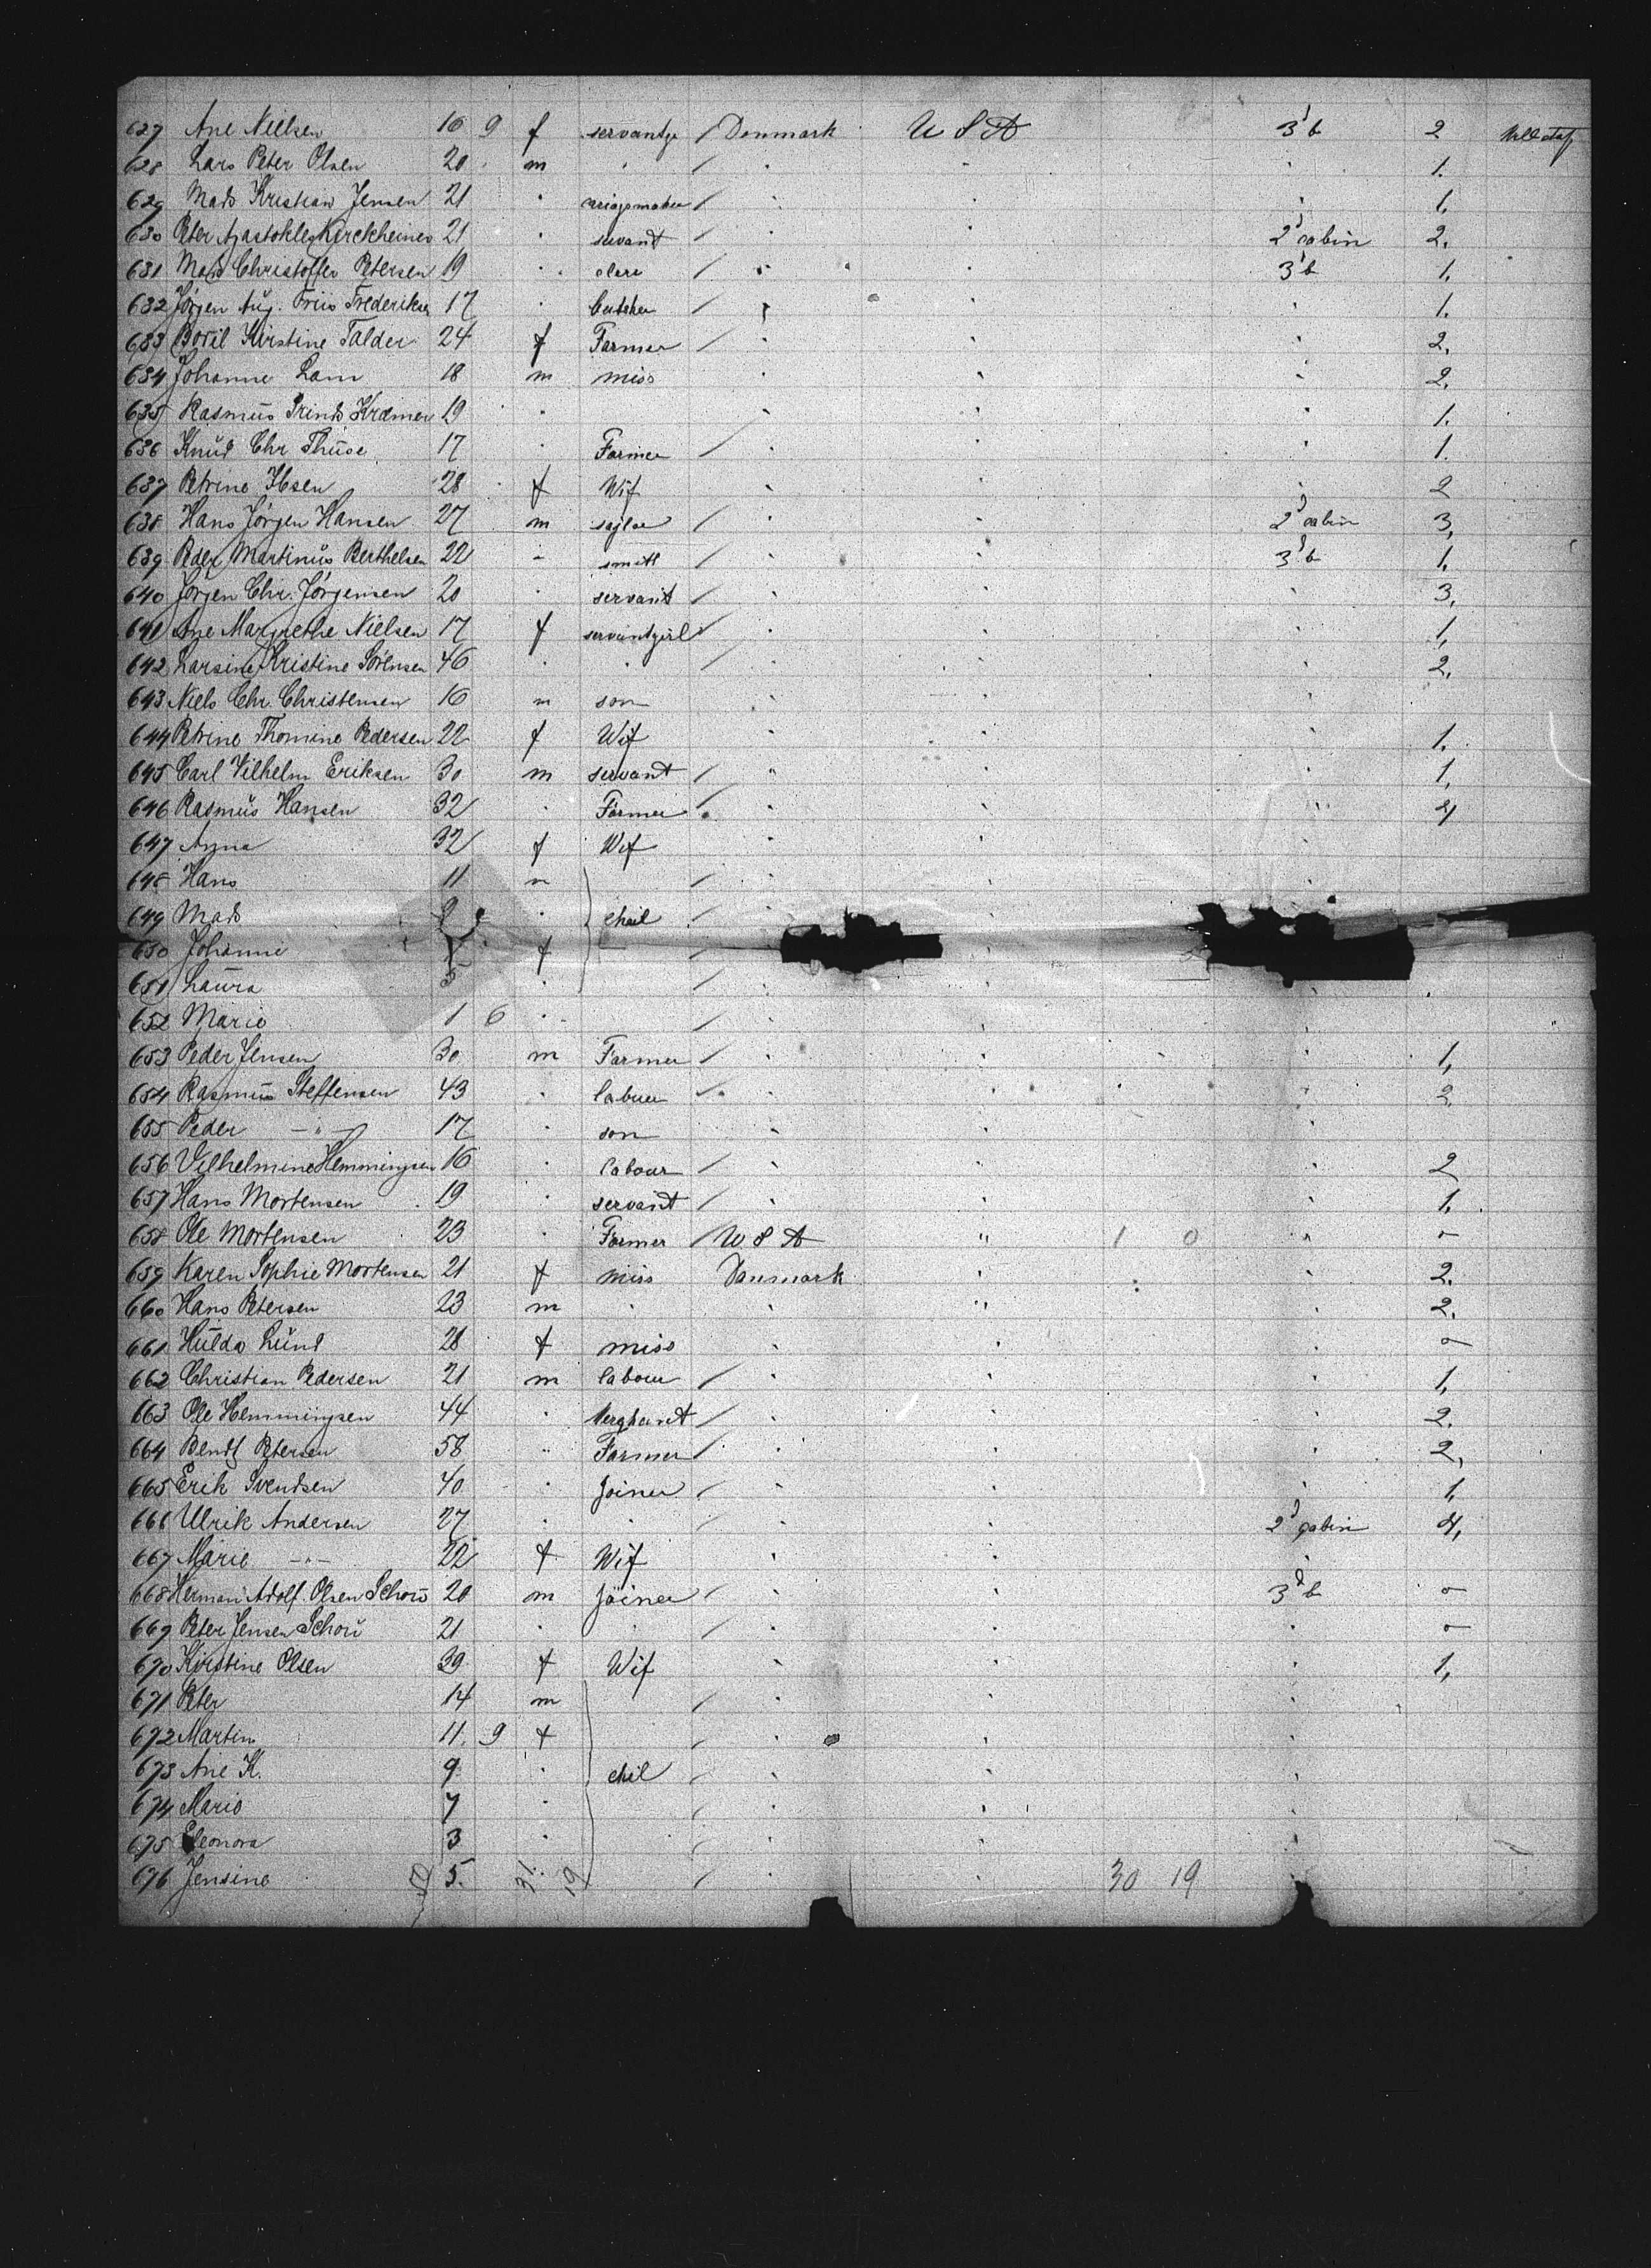 627 Ane Nielsen 16 9 f servantg / Denmark U S A 3d b 2
628 Lars Peter Olsen 20 m / 1.
629 Mads Kristian Jensen 21 / 1.
630 Peter Kirckheiner 21 servant / 2d cabin 2.
631 Mads Christoffer Petersen 19 / 3d b 1.
632 Jörgen Aug. Friis Frederiksen 17 / 1.
633 Bodil Kirstine Falder 24 f Farmer / 2.
634 Johanne Lam 18 m miss 2.
635 Rasmus Krämer 19 1.
636 Knud Chr Thuse 17 Farmer / 1.
637 Petrine Ibsen 28 f Wif 2
638 Hans Jörgen Hansen 27 m sajlor / 2d cabin 3,
639 Peder Martinus Berthelsen 22 smitt / 3d b 1.
640 Jörgen Chr. Jörgensen 20 servant / 3,
641 Ane Margrethe Nielsen 17 f servantgirl / 1,
642 Larsine Kristine Sörensen 46 / 2.
643 Niels Chr. Christensen 16 m son
644 Petrine Thomine Pedersen 22 f Wif 1.
645 Carl Vilhelm Eriksen 30 m servant / 1,
646 Rasmus Hansen 32 Farmer / 4
647 Anna 32 f Wif
648 Hans 11 m /
649 Mads 9 cheil /
650 Johanne f /
651 Laura 5 /
652 Marie 1 6 /
653 Peder Jensen 30 m Farmer / 1,
654 Rasmus Steffensen 43 labuer / 2.
655 Peder -"- 17 son
656 Vilhelmine Hemmingsen 16 labour / 2
657 Hans Mortensen 19 servant / 1.
658 Ole Mortensen 23 Farmer / U S A " 1 0 -
659 Karen Sophie Mortensen 21 f miss Danmark 2.
660 Hans Petersen 23 m " 2.
661 Hulda Lund 28 f miss -
662 Christian Pedersen 21 m labour / 1,
663 Ole Hemmingsen 44 Merghant / 2.
664 Bendt Petersen 58 Farmer / 2,
665 Erik Svendsen 40 Joiner / 1,
666 Ulrik Andersen 27 / 2d cabin 4,
667 Marie -"- 22 f Wif
668 Herman Adolf Olsen Schou 20 m Joiner / 3d b -
669 Peter Jensen Schou 21 / -
670 Kirstine Olsen 39 f Wif 1,
671 Peter 14 m /
672 Martin 11. 9 f /
673 Ane K. 9 chil /
674 Marie 7 /
675 Eleonora 3 /
676 Jensine 5. 31. 19 / 30 19